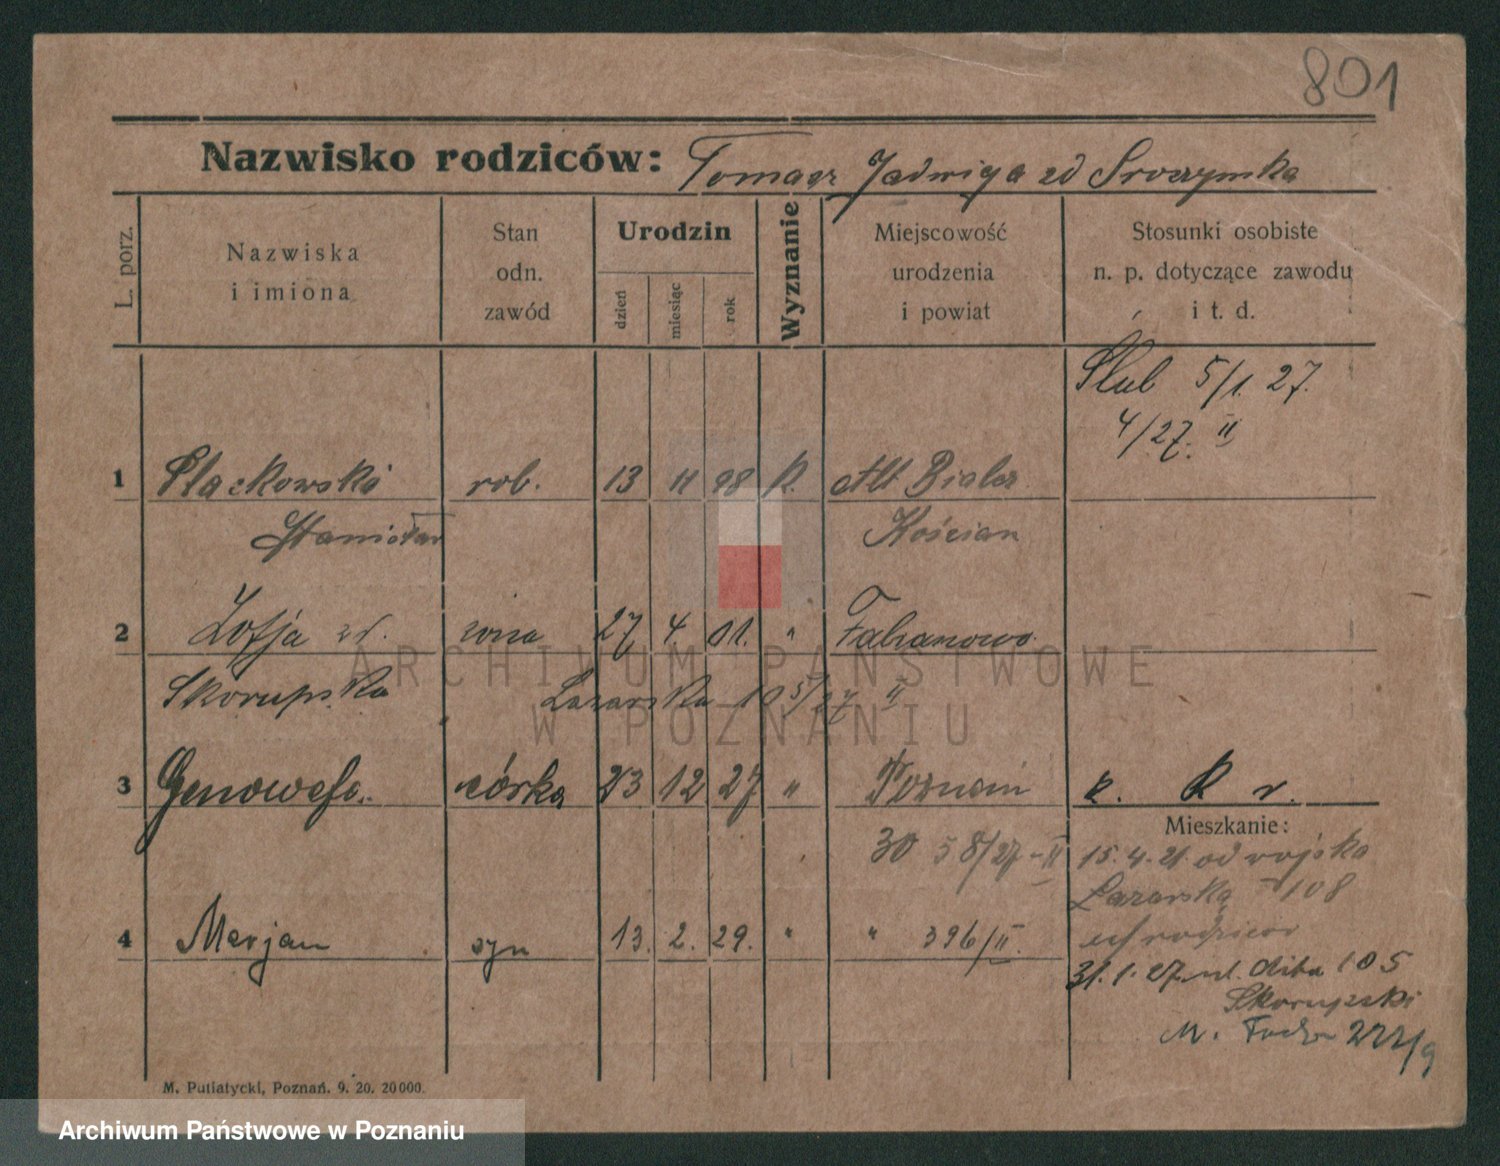 801
Nazwisko rodziców: Tomasz Jadwiga zd Sroczyńska
L. porz.
Nazwiska i imiona
Stan odn. zawód
Urodzin
dzień
miesiąc
rok
Wyznanie
Miejscowość urodzenia i powiat
Stosunki osobiste n. p. dotyczące zawodu i t. d.
Ślub 5/1. 27.
4/27. II
1 rob. 13 11 98 k. Alt Bialcz
Stanisław Kościan
2 Zofja zd. żona 27 4. 01. " Fabianowo
Skorupska Lazarska 10 5/27 II
3 Genowefa córka 23 12 27 " Poznań k. R r.
30 58/27 - II
Mieszkanie:
15. 4. 21. od wojska
Lazarska 108
rodziców
4 Marjan syn 13. 2. 29. " " 396/II.
31. 1. 27. ul. 105
Skorupski
M. 222/9
M. Putiatycki, Poznań. 9. 20. 20000.
ARCHIWUM PAŃSTWOWE
W POZNANIU
Archiwum Państwowe w Poznaniu